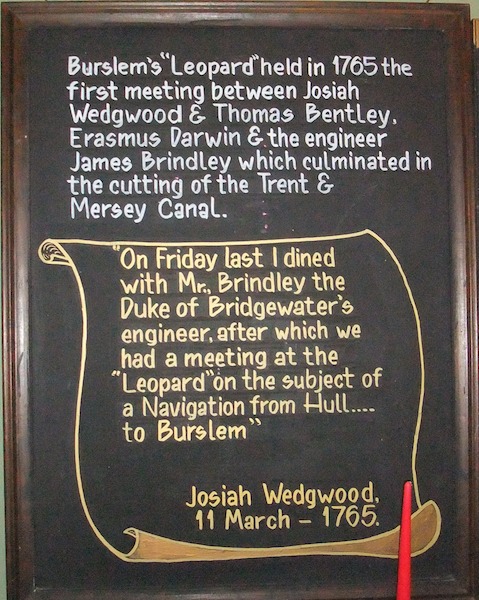 Burslem's "Leopard" held in 1765 the
first meeting between Josiah
Wedgwood & Thomas Bentley,
Erasmus Darwin & the engineer
James Brindley which culminated in
the cutting of the Trent &
Mersey Canal.
"On Friday last I dined
with Mr., Brindley the
Duke of Bridgewater's
engineer, after which we
had a meeting at the
"Leopard" on the subject of
a Navigation from Hull....
to Burslem"
Josiah Wedgwood,
11 March - 1765.